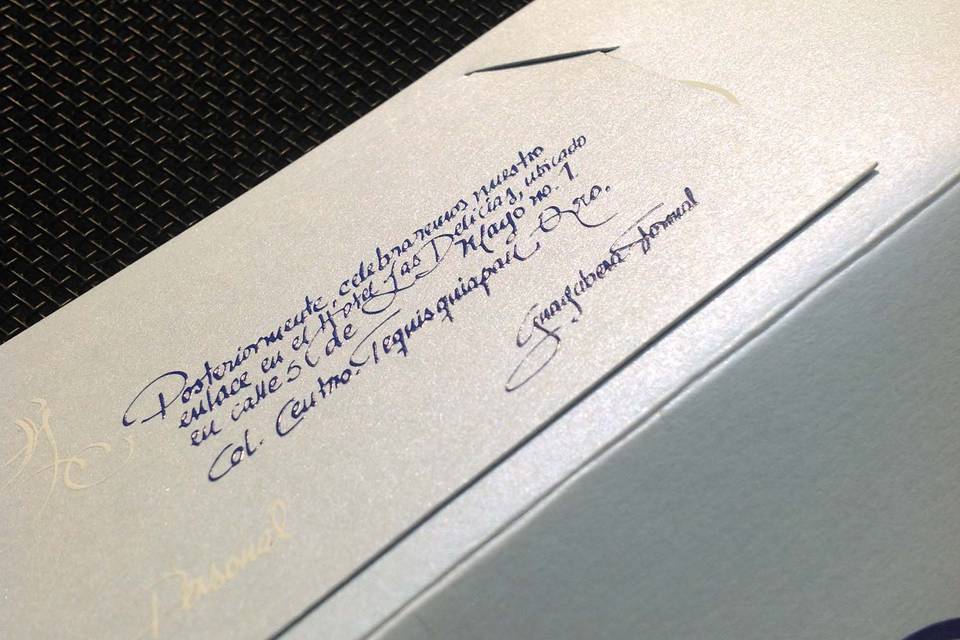 Posteriormente, celebraremos nuestro
enlace en el Hotel Las Delicias, ubicado
en calle 5 de Mayo no. 1
Col. Centro. Tequisquiapan Qro.
Guayabera Formal
Personal